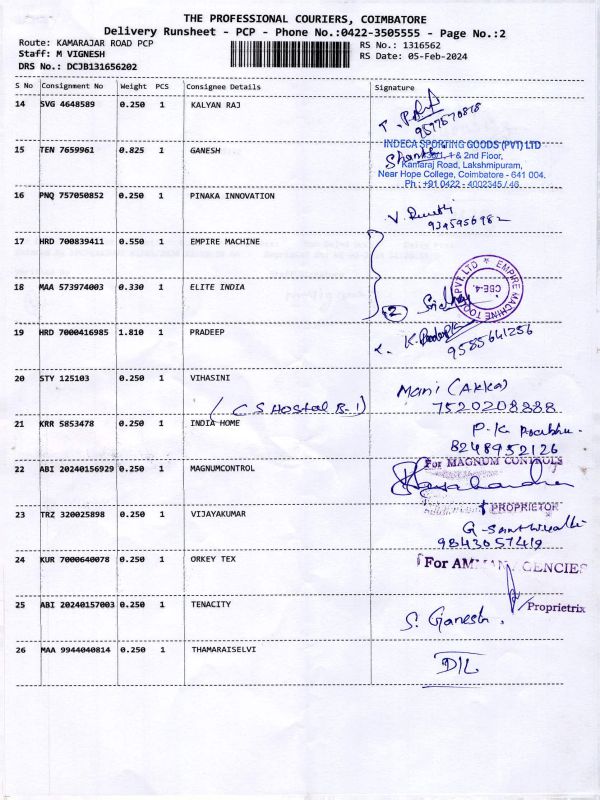 THE PROFESSIONAL COURIERS, COIMBATORE
Delivery Runsheet - PCP - Phone No.:0422-3505555 - Page No.:2
Route: KAMARAJAR ROAD PCP
Staff: M VIGNESH
DRS No.: DCJB131656202
RS No.: 1316562
RS Date: 05-Feb-2024
S No Consignment No Weight PCS Consignee Details Signature
14 SVG 4648589 0.250 1 KALYAN RAJ
9577570878
15 TEN 7659961 0.825 1 GANESH
INDECA SPORTING GOODS (PVT) LTD
& 2nd Floor,
Kamaraj Road, Lakshmipuram,
Near Hope College, Coimbatore - 641 004.
Ph : +91 0422 - 4002345 / 46
16 PNQ 757050852 0.250 1 PINAKA INNOVATION
9345956982
17 HRD 700839411 0.550 1 EMPIRE MACHINE
18 MAA 573974003 0.330 1 ELITE INDIA
2
EMPIRE MACHINE TOOLS PVT. LTD
CBE-4.
19 HRD 7000416985 1.810 1 PRADEEP
9585641256
20 STY 125103 0.250 1 VIHASINI
Mani (AKKA)
(C S Hostal B-1)
7520208888
21 KRR 5853478 0.250 1 INDIA HOME
P.K Prabhu.
8248952126
22 ABI 20240156929 0.250 1 MAGNUMCONTROL
For MAGNUM CONTROLS
PROPRIETOR
23 TRZ 320025898 0.250 1 VIJAYAKUMAR
9843057419
24 KUR 7000640078 0.250 1 ORKEY TEX
For AMMAN AGENCIES
Proprietrix
25 ABI 20240157003 0.250 1 TENACITY
S. Ganesh.
26 MAA 9944040814 0.250 1 THAMARAISELVI
D/L